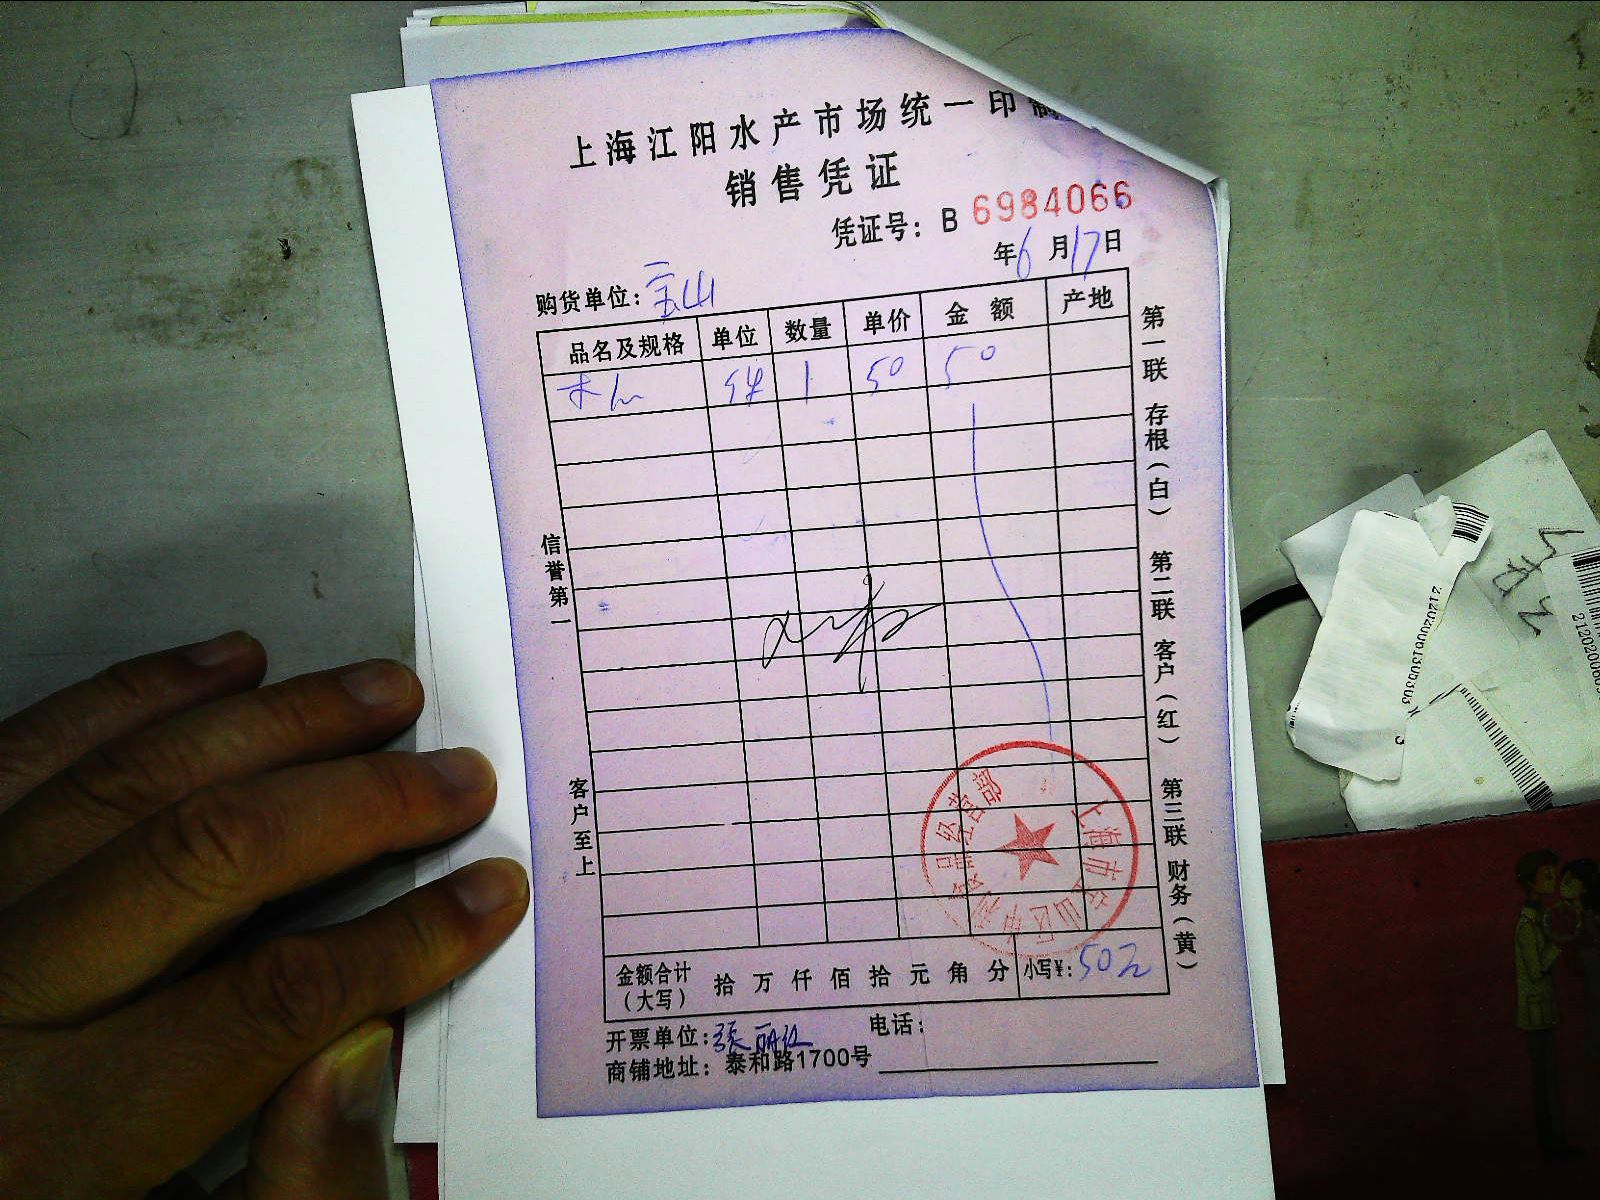 上海江阳水产市场统一印制
销售凭证
凭证号：B 6984066
年6月17日
购货单位：宝山
品名及规格 单位 数量 单价 金额 产地
件 1 50 50
信誉第一
客户至上
第一联 存根（白） 第二联 客户（红） 第三联 财务（黄）
上海市宝山区 经营部
金额合计（大写） 拾万仟佰拾元角分 小写¥：50元
开票单位：張丽红 电话：
商铺地址：泰和路1700号
2120200613005303